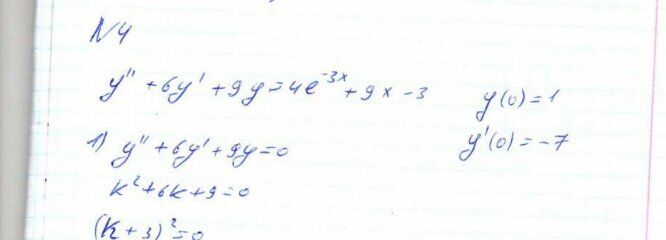 N4
y'' + 6y' + 9y = 4e^{-3x} + 9x - 3
y(0) = 1
y'(0) = -7
1) y'' + 6y' + 9y = 0
k² + 6k + 9 = 0
(k + 3)² = 0